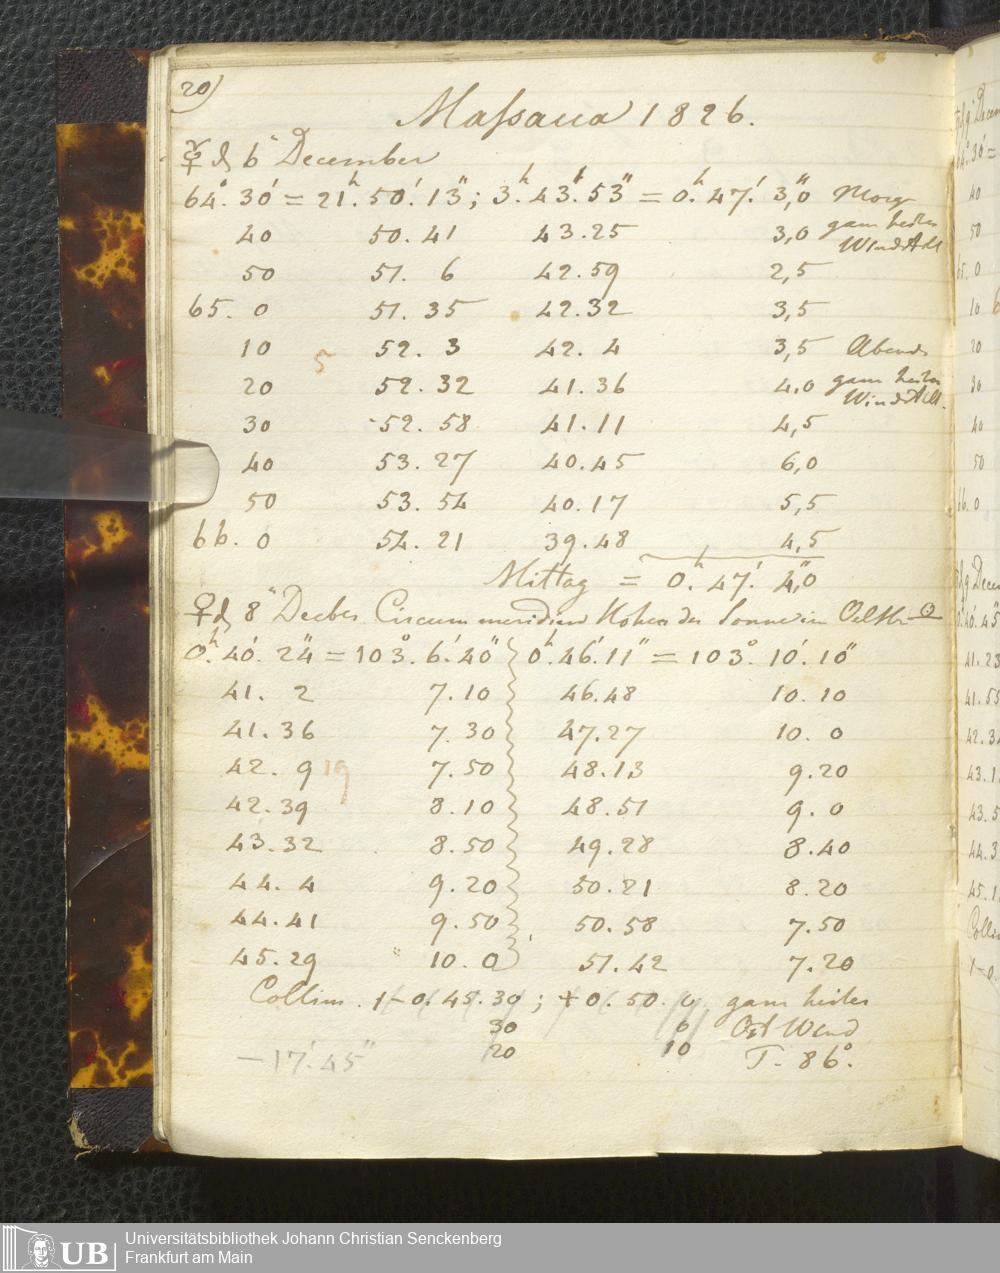 20)
Massaua 1826.
☿ d 6ᵗ December
64°. 30' = 21ʰ. 50'. 13"; 3ʰ. 43'. 53" = 0ʰ. 47'. 3",0 Morg
40 50. 41 43. 25 3,0 ganz heiter
Windstill
50 51. 6 42. 59 2,5
65. 0 51. 35 42. 32 3,5
10 5 52. 3 42. 4 3,5 Abends
20 52. 32 41. 36 4,0 ganz heiter
Windstill.
30 52. 58 41. 11 4,5
40 53. 27 40. 45 6,0
50 53. 54 40. 17 5,5
66. 0 54. 21 39. 48 4,5
Mittag = 0ʰ. 47'. 4",0
♀ d 8ᵗ Decbr Circummeridian Hohen der Sonne im Oelhr ☉
0ʰ. 40'. 24" = 103°. 6'. 40" 0ʰ. 46'. 11" = 103°. 10'. 10"
41. 2 7. 10 46. 48 10. 10
41. 36 7. 30 47. 27 10. 0
42. 9 19 7. 50 48. 13 9. 20
42. 39 8. 10 48. 51 9. 0
43. 32 8. 50 49. 28 8. 40
44. 4 9. 20 50. 21 8. 20
44. 41 9. 50 50. 58 7. 50
45. 29 10. 0 51. 42 7. 20
Collim. – 0. 45. 30; + 0. 50. 0 ganz heiter
30 0 Ost Wind
– 17'. 45" 20 10 T. 86°.
UB
Universitätsbibliothek Johann Christian Senckenberg
Frankfurt am Main